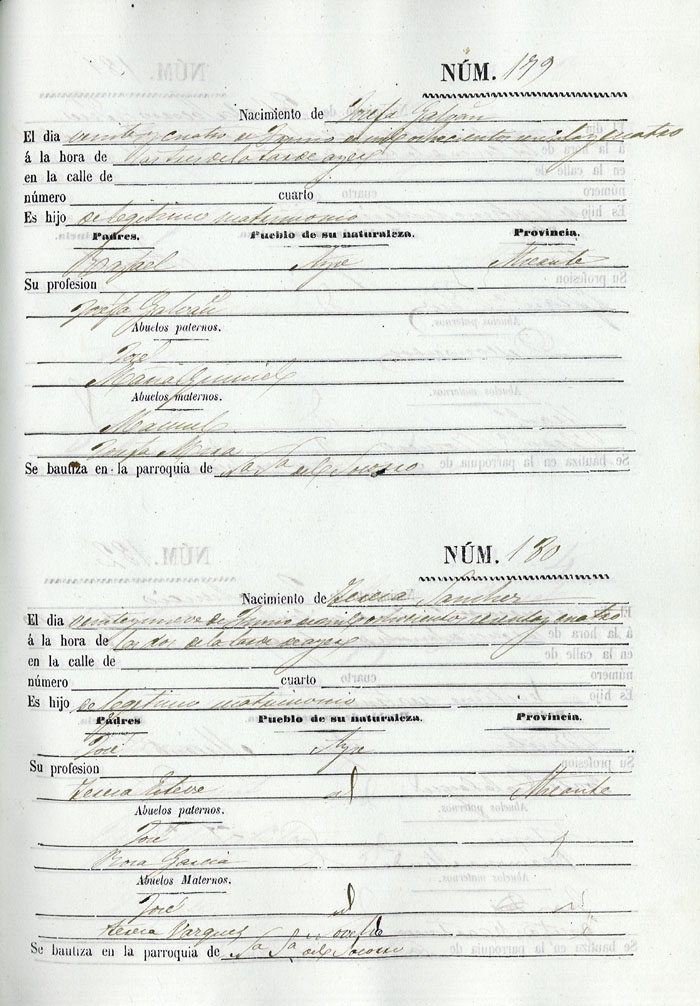 NÚM. 179
Nacimiento de Josefa Galvañ
El dia veinte y cuatro de Junio de mil ochocientos sesenta y cuatro
á la hora de las tres de la tarde de ayer
en la calle de
número cuarto
Es hijo de legitimo matrimonio
Padres. Pueblo de su naturaleza. Provincia.
Rafael Aspe Alicante
Su profesion
Josefa Galvañ
Abuelos paternos.
José
Maria
Abuelos maternos.
Manuel
Josefa Mira
Se bautiza en la parroquia de Na Sa del Socorro
NÚM. 180
Nacimiento de Teresa Sanchez
El dia de Junio de mil ochocientos sesenta y cuatro
á la hora de las dos de la tarde de ayer
en la calle de
número cuarto
Es hijo de legitimo matrimonio
Padres Pueblo de su naturaleza. Provincia.
José Aspe
Su profesion
Teresa Esteve id Alicante
Abuelos paternos.
José
Rosa Garcia
Abuelos Maternos.
José id
Teresa Vazquez
Se bautiza en la parroquia de Na Sa del Socorro